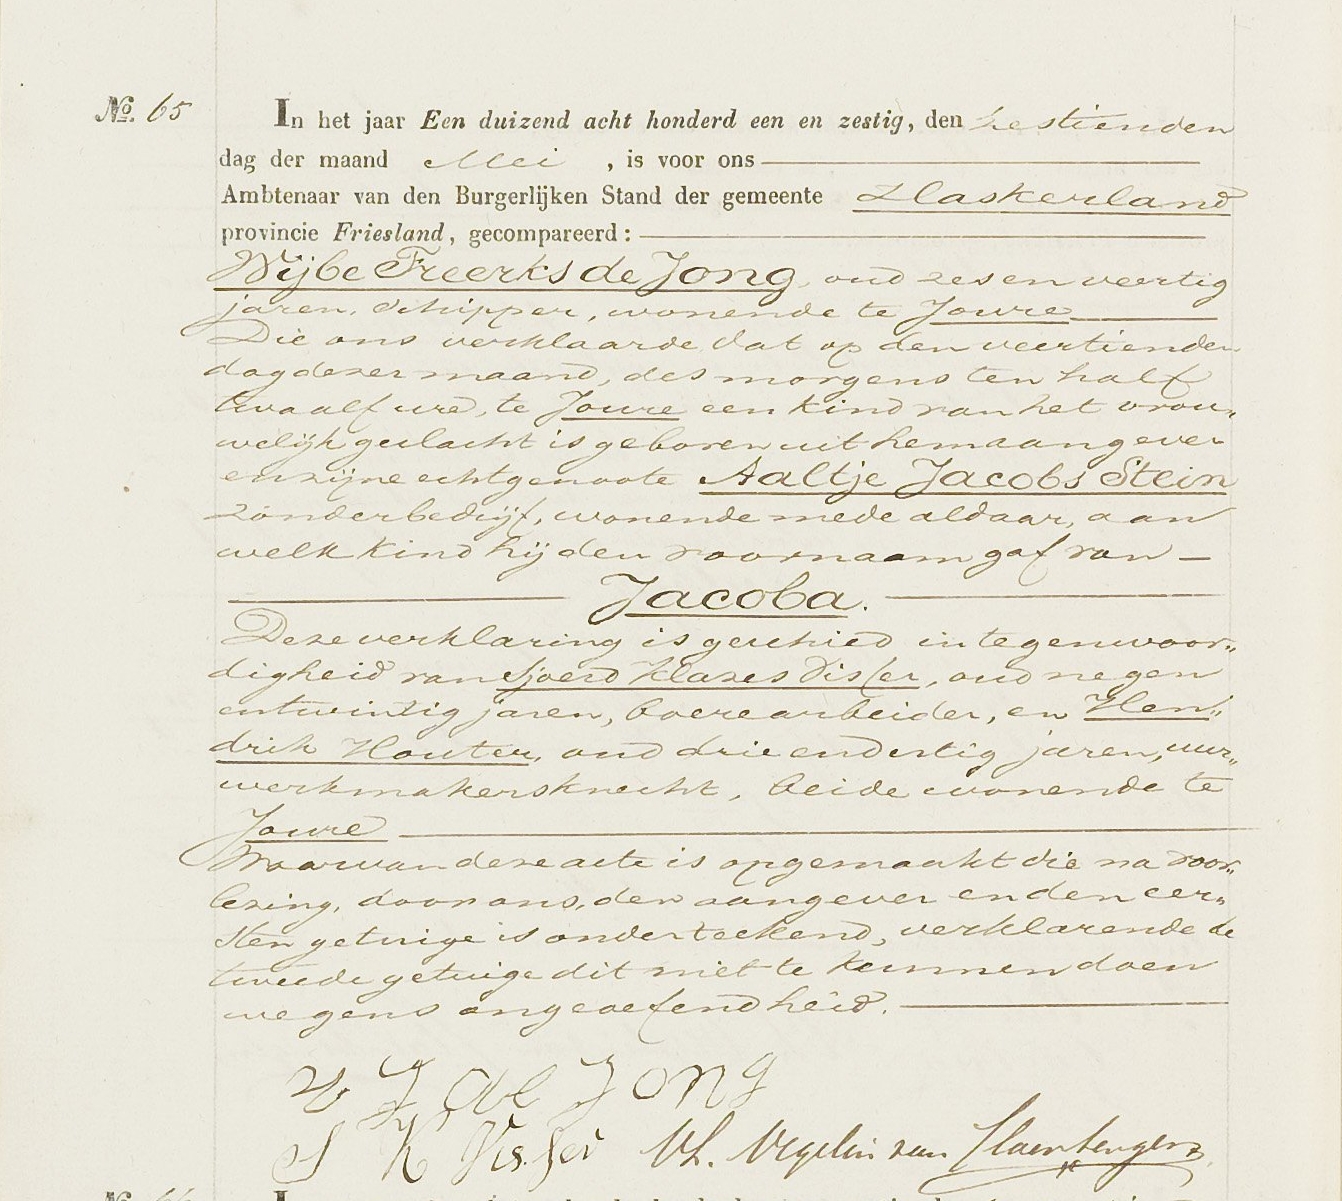 No. 65
In het jaar Een duizend acht honderd een en zestig, den zestienden
dag der maand Mei , is voor ons
Ambtenaar van den Burgerlijken Stand der gemeente Haskerland
provincie Friesland, gecompareerd:
Wijbe Freerks de Jong, oud zes en veertig
jaren, schipper, wonende te Joure
Die ons verklaarde dat op den veertienden
dag dezer maand, des morgens ten half
twaalf ure, te Joure een kind van het vrou„
welijk geslacht is geboren uit hem aangever
en zijne echtgenoote Aaltje Jacobs Stein
zonder bedrijf, wonende mede aldaar, aan
welk kind hij den voornaam gaf van
Jacoba.
Deze verklaring is geschied in tegenwoor„
digheid van Sjoerd Klazes Visser, oud negen
entwintig jaren, boerearbeider, en Hen„
drik Houter, oud drie en dertig jaren, uur„
werkmakersknecht, beide wonende te
Joure
Waarvan deze acte is opgemaakt die na voor„
lezing, door ons, den aangever en den eer„
sten getuige is onderteekend, verklarende de
tweede getuige dit niet te kunnen doen
wegens ongeoefendheid.
W F de Jong
S K Visser Vegelin van Claerbergen
No. 66